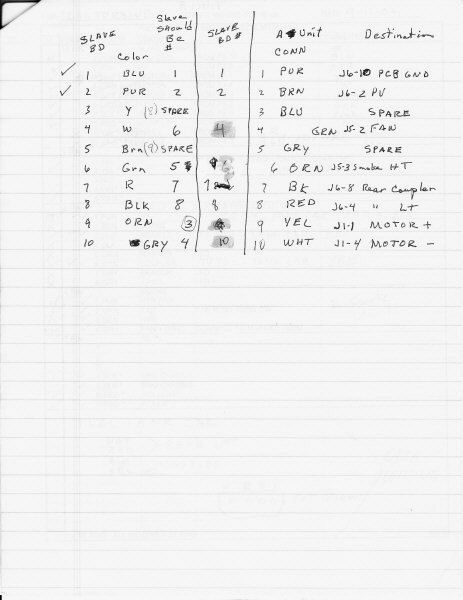 SLAVE BD Color Slave Should Be # SLAVE BD# A Unit CONN Destination
✓ 1 BLU 1 1 1 PUR J6-10 PCB GND
✓ 2 PUR 2 2 2 BRN J6-2 PV
3 Y (8) SPARE 3 BLU SPARE
4 W 6 4 4 GRN J5-2 FAN
5 Brn (9) SPARE 5 GRY SPARE
6 Grn 5 6 ORN J5-3 Smoke HT
7 R 7 7 BK J6-8 Rear Coupler
8 BLK 8 8 8 RED J6-4 " LT
9 ORN (3) 9 YEL J1-1 MOTOR +
10 GRY 4 10 10 WHT J1-4 MOTOR -